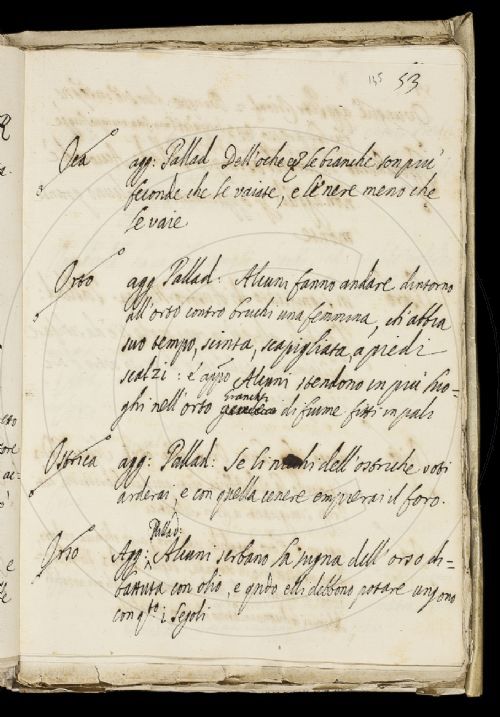 145 53
Oca agg: Pallad. Dell'oche le bianche son più
feconde che le vaiate, e le nere meno che
le vaie
Orto agg Pallad: Alcuni fanno andare dintorno
all'orto contro bruchi una femmina, ch'abbia
suo tempo, scinta, scapigliata, a piedi
scalzi: e Alcuni stendono in più luo=
ghi nell'orto granchi di fiume fitti in pali
Ostrica agg: Pallad: Se li nichi dell'ostriche voti
arderai, e con quella cenere empierai il foro.
Pallad:
Orso Agg: Alcuni serbano la sugna dell'orso di=
battuta con olio, e qndo elli debbono potare ungono
con qto i segoli